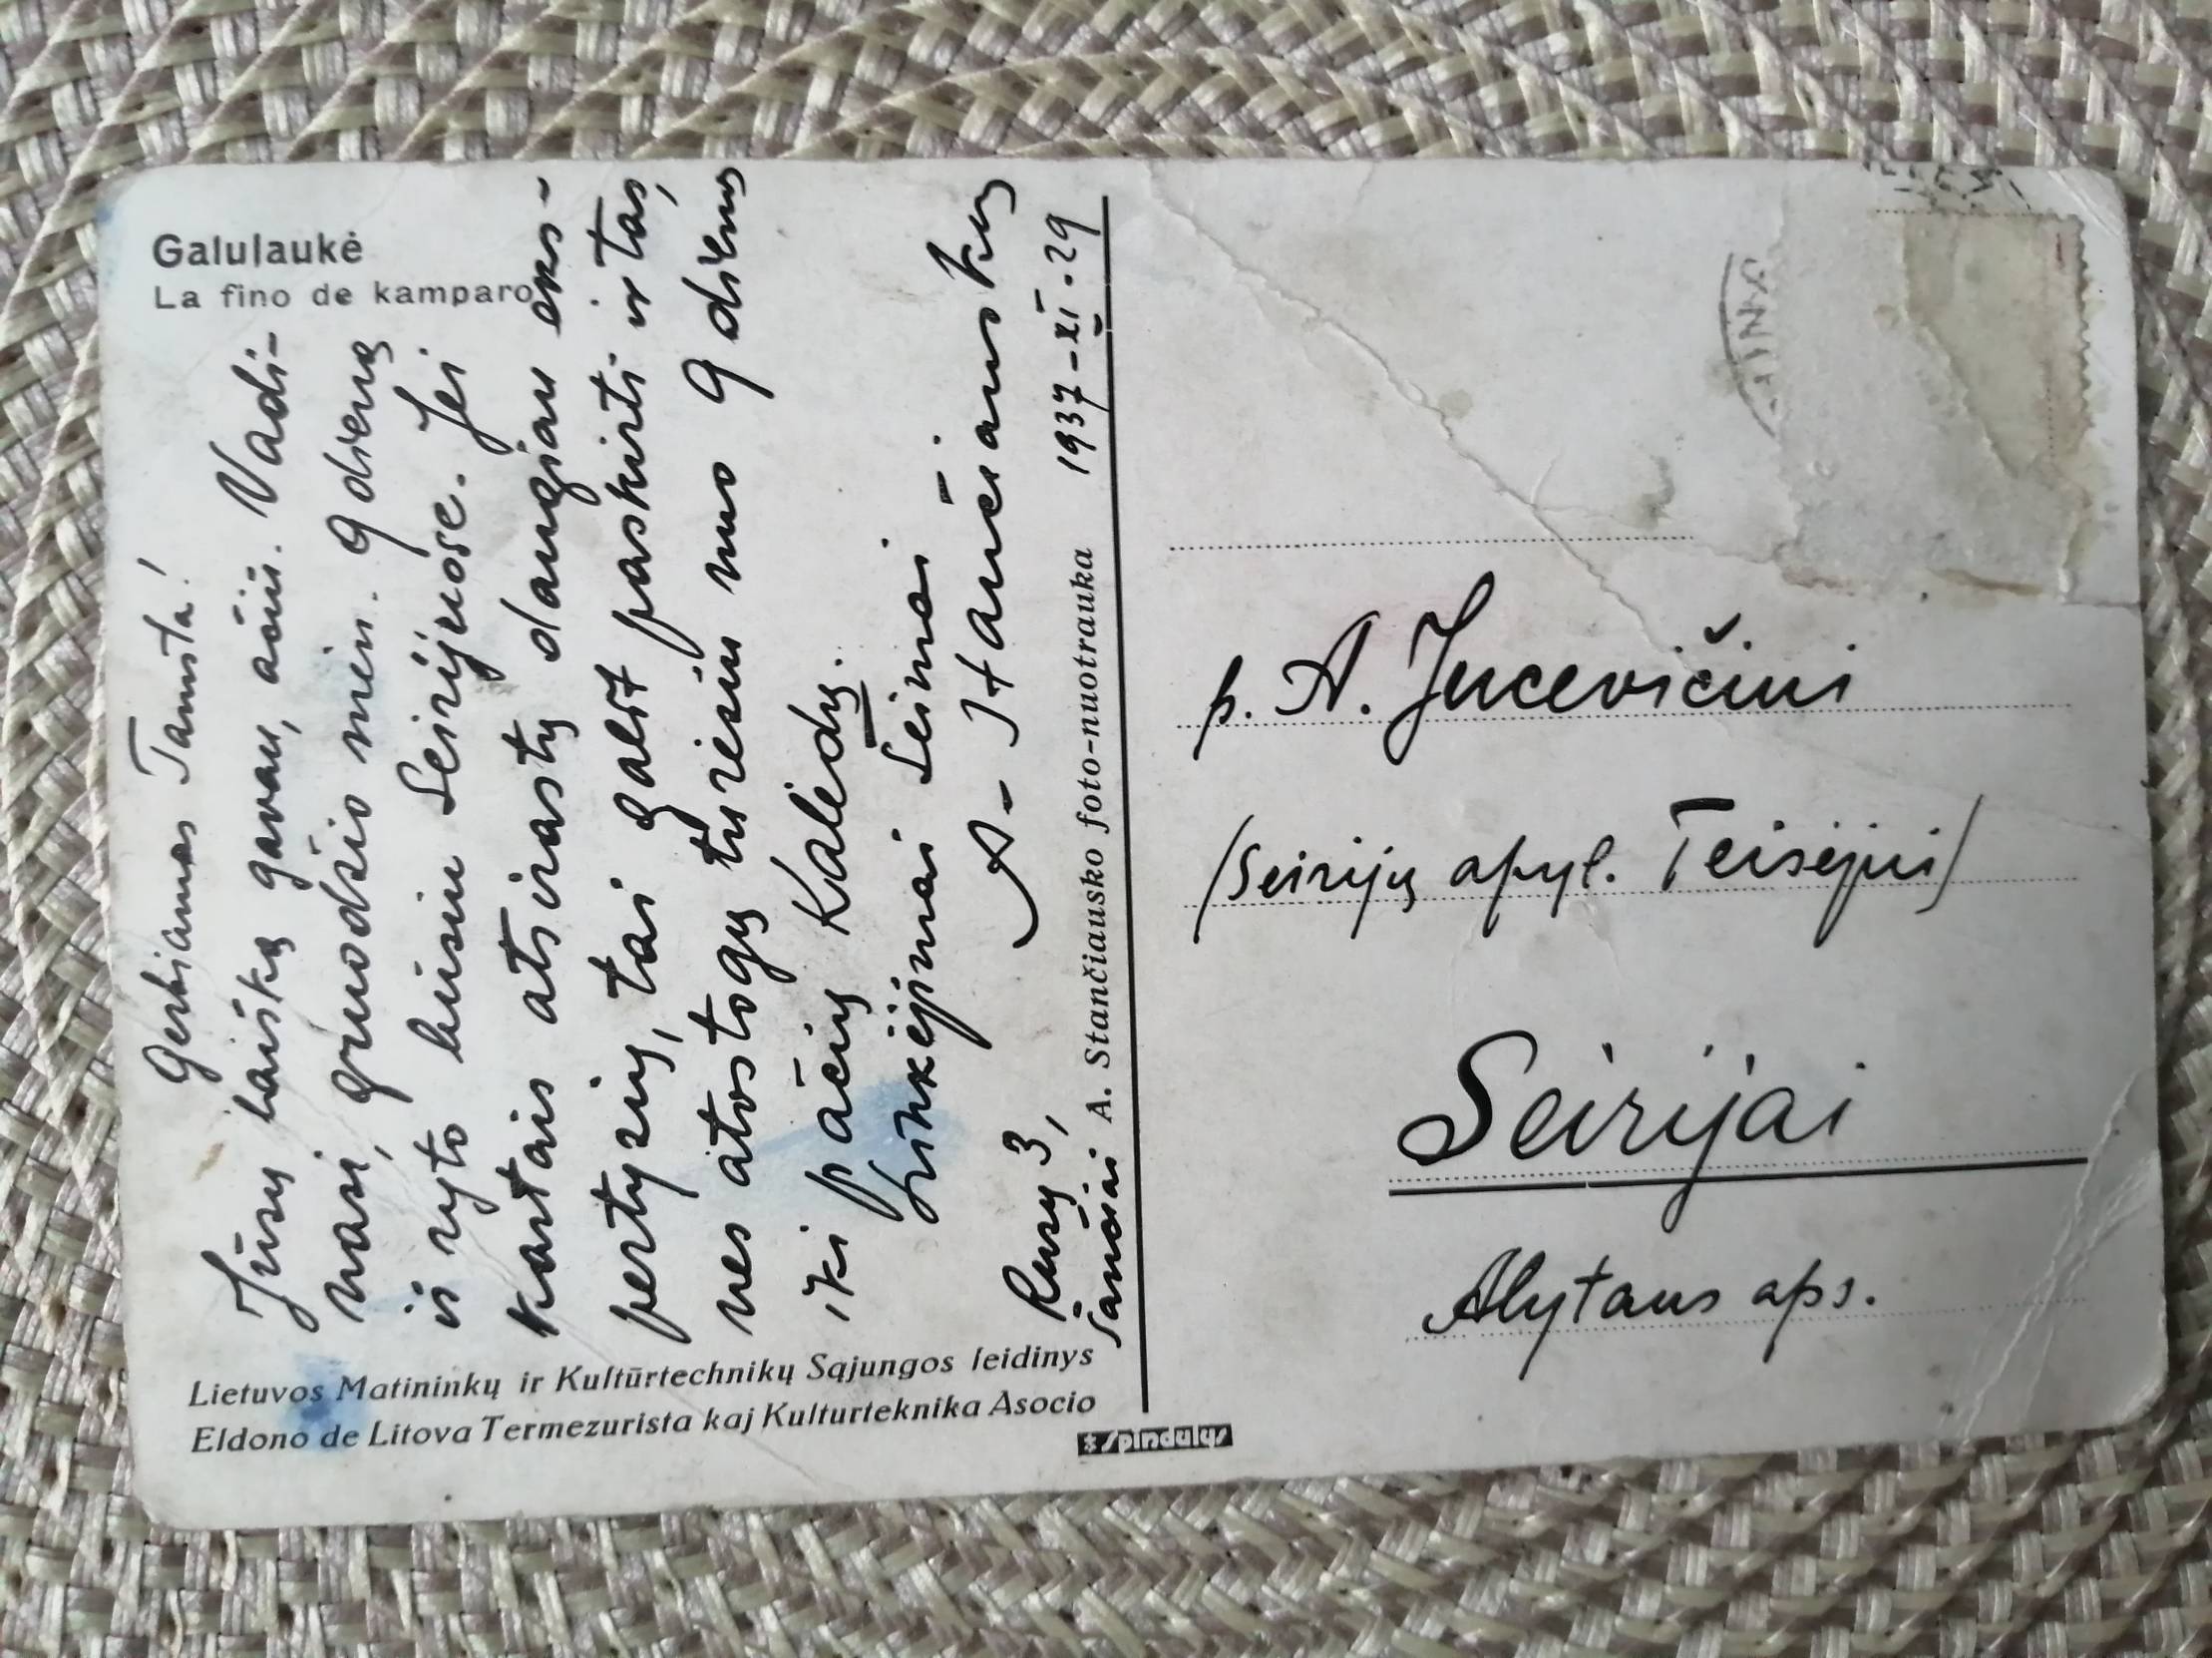 Galulaukė
La fino de kamparo
Gerbiamas Tamsta!
Jūsų laišką gavau, ačiū. Vadi-
nasi, gruodžio mėn. 9 dieną
iš ryto busiu Seirijuose. Jei
kartais atsirastų daugiau eks-
pertyzių, tai galit paskirti ir tas,
nes atostogų turėsiu nuo 9 dienos
iki pačių Kalėdų.
Linkėjimai Šeimai –
A. Stančiauskas
Rusų 3,
Šančiai
1937-XI-29
A. Stančiausko foto-nuotrauka
Lietuvos Matininkų ir Kultūrtechnikų Sąjungos leidinys
Eldono de Litova Termezurista kaj Kulturteknika Asocio
Spindulys
p. A. Jucevičiui
/Seirijų apyl. Teisėjui/
Seirijai
Alytaus aps.